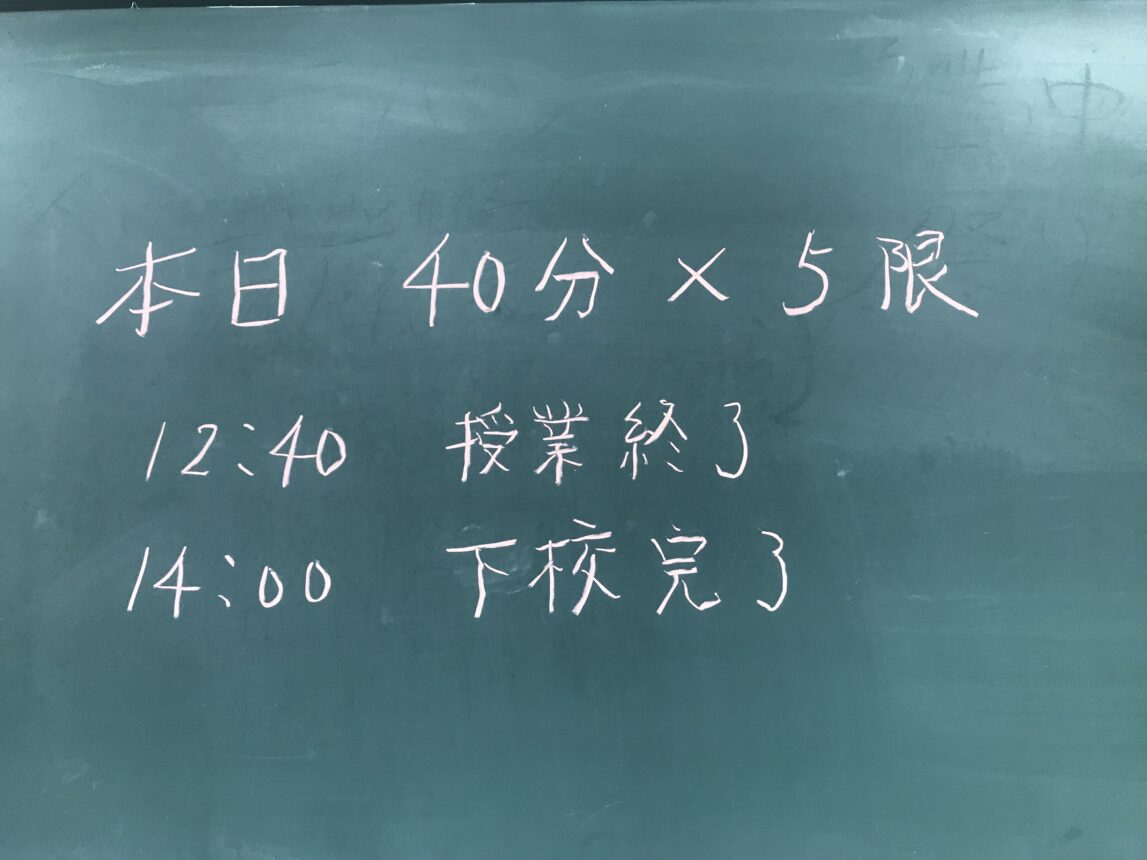 本日 40分×5限
12:40 授業終了
14:00 下校完了